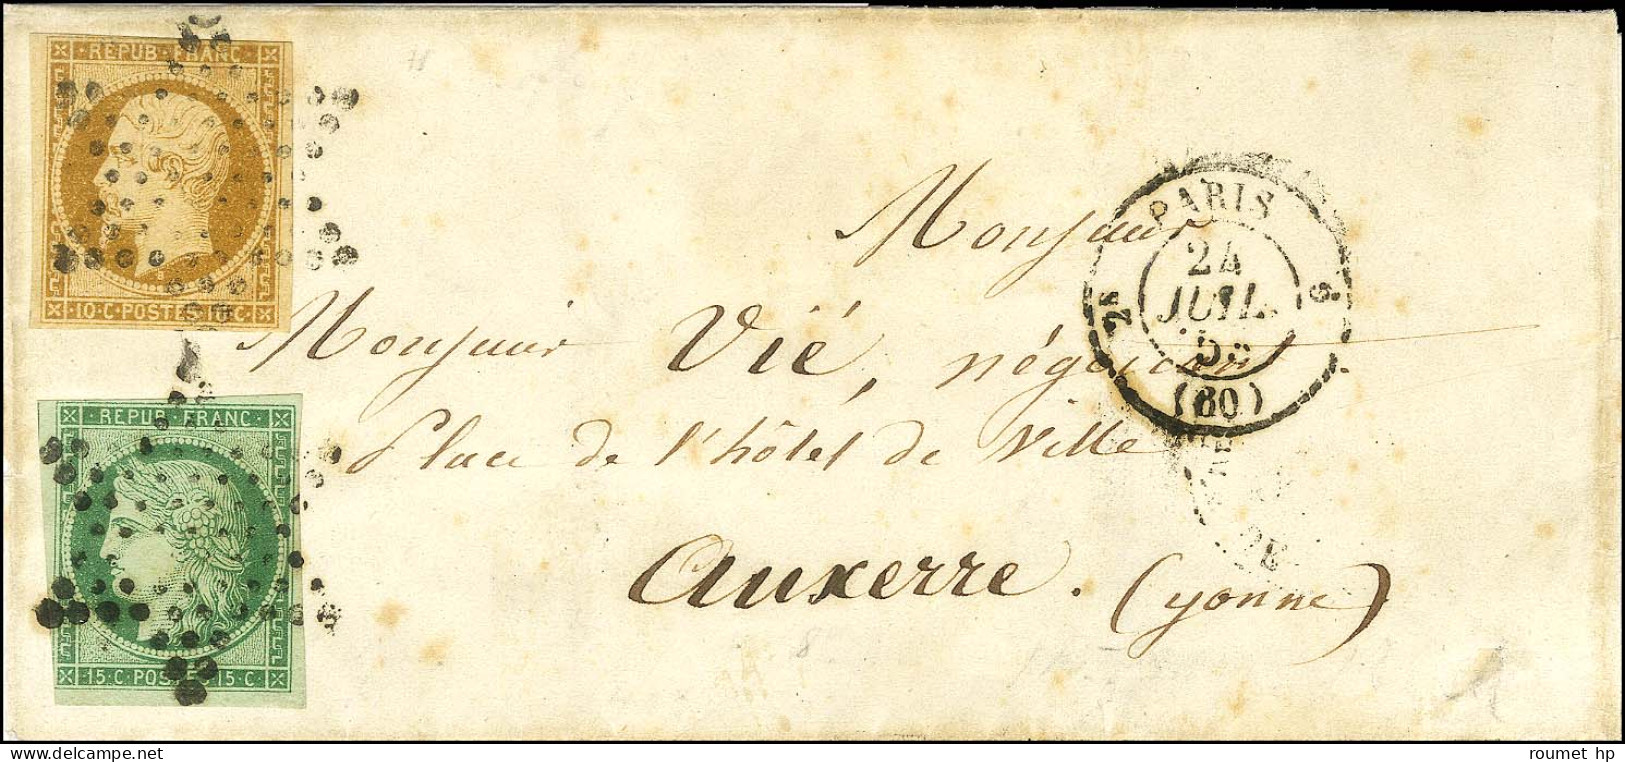 REPUB·FRANC·
10·C·POSTES 10·C
REPUB·FRANC·
15·C·POSTES 15·C
PARIS
24
JUIL.
(60)
Monsieur
Monsieur Vié, négociant
Place de l'hôtel de Ville
Auxerre. (Yonne)
www.delcampe.net
roumet hp